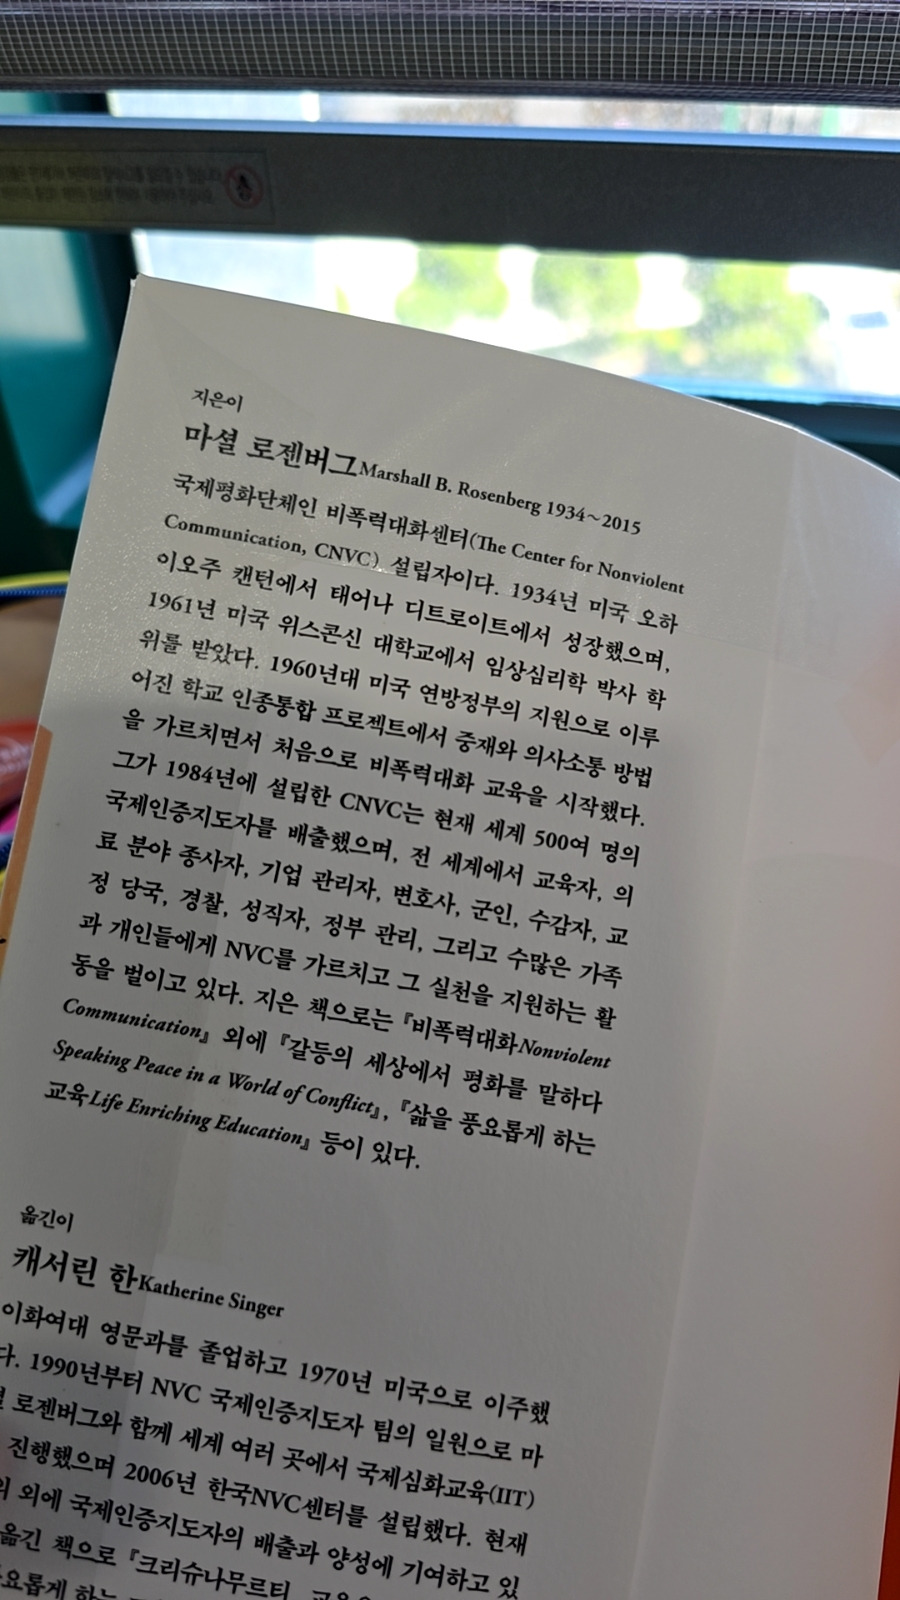 지은이
마셜 로젠버그Marshall B. Rosenberg 1934~2015
국제평화단체인 비폭력대화센터(The Center for Nonviolent
Communication, CNVC) 설립자이다. 1934년 미국 오하
이오주 캔턴에서 태어나 디트로이트에서 성장했으며,
1961년 미국 위스콘신 대학교에서 임상심리학 박사 학
위를 받았다. 1960년대 미국 연방정부의 지원으로 이루
어진 학교 인종통합 프로젝트에서 중재와 의사소통 방법
을 가르치면서 처음으로 비폭력대화 교육을 시작했다.
그가 1984년에 설립한 CNVC는 현재 세계 500여 명의
국제인증지도자를 배출했으며, 전 세계에서 교육자, 의
료 분야 종사자, 기업 관리자, 변호사, 군인, 수감자, 교
정 당국, 경찰, 성직자, 정부 관리, 그리고 수많은 가족
과 개인들에게 NVC를 가르치고 그 실천을 지원하는 활
동을 벌이고 있다. 지은 책으로는 『비폭력대화Nonviolent
Communication』 외에 『갈등의 세상에서 평화를 말하다
Speaking Peace in a World of Conflict』, 『삶을 풍요롭게 하는
교육Life Enriching Education』 등이 있다.
옮긴이
캐서린 한Katherine Singer
이화여대 영문과를 졸업하고 1970년 미국으로 이주했
다. 1990년부터 NVC 국제인증지도자 팀의 일원으로 마
로젠버그와 함께 세계 여러 곳에서 국제심화교육(IIT)
진행했으며 2006년 한국NVC센터를 설립했다. 현재
외에 국제인증지도자의 배출과 양성에 기여하고 있
옮긴 책으로 『크리슈나무르티,
하는